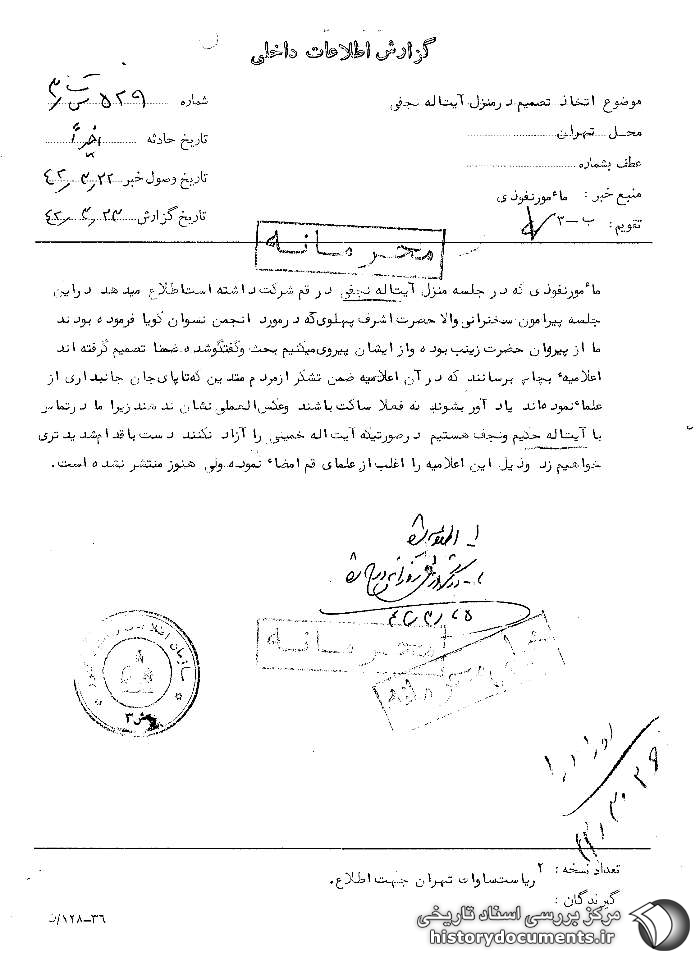 گزارش اطلاعات داخلی
موضوع اتخاذ تصمیم در منزل آیت اله نجفی
محل تهران
عطف بشماره
منبع خبر: مأمور نفوذی
تقویم: ب-۳
شماره ۵۲۹
تاریخ حادثه اخیراً
تاریخ وصول خبر ۴۲٫۳٫۲۲
تاریخ گزارش ۴۲٫۳٫۲۳
محرمانه
مأمور نفوذی که در جلسه منزل آیت اله نجفی در قم شرکت داشته است اطلاع میدهد در این
جلسه پیرامون سخنرانی والاحضرت اشرف پهلوی که در مورد انجمن نسوان گویا فرموده بودند
ما از پیروان حضرت زینب بوده و از ایشان پیروی میکنیم بحث و گفتگو شده ضمنا تصمیم گرفته اند
اعلامیه ای بچاپ برسانند که در آن اعلامیه ضمن تشکر از مردم متدین که تا پای جان جانبداری از
علماء نموده اند یاد آور بشوند که فعلا ساکت باشند و عکس العملی نشان ندهند زیرا ما در تماس
با آیت اله حکیم و نجف هستیم در صورتیکه آیت اله خمینی را آزاد نکنند دست باقدام شدیدتری
خواهیم زد و ذیل این اعلامیه را اغلب از علمای قم امضاء نموده ولی هنوز منتشر نشده است.
۱- اطلاع
محرمانه
تعداد نسخه: ۲
ریاست ساواک تهران جهت اطلاع.
گیرندگان:
۱۲۸-۳۶/ن
مرکز بررسی اسناد تاریخی
historydocuments.ir